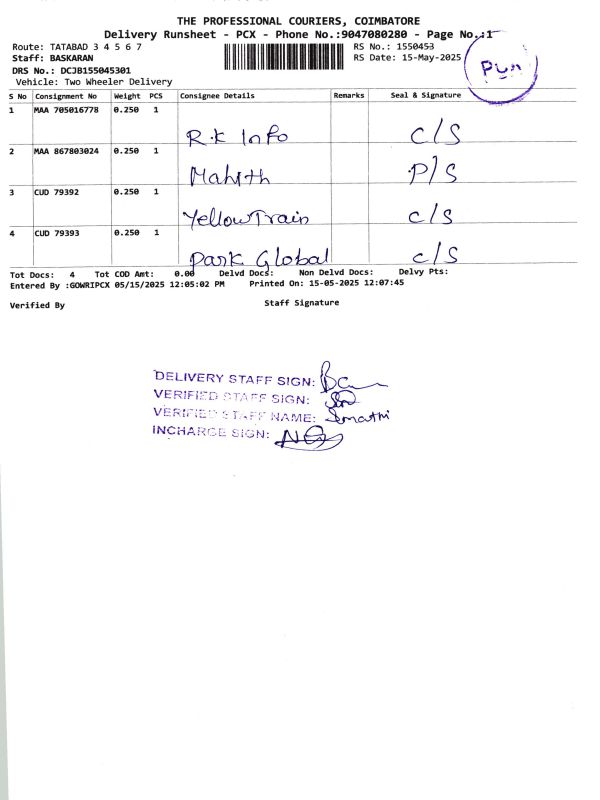 THE PROFESSIONAL COURIERS, COIMBATORE
Delivery Runsheet - PCX - Phone No.:9047080280 - Page No.:1
Route: TATABAD 3 4 5 6 7
RS No.: 1550453
Staff: BASKARAN
RS Date: 15-May-2025
DRS No.: DCJB155045301
Vehicle: Two Wheeler Delivery
Pun
S No Consignment No Weight PCS Consignee Details Remarks Seal & Signature
1 MAA 705016778 0.250 1 R.K Info C/S
2 MAA 867803024 0.250 1 Mahith P/S
3 CUD 79392 0.250 1 YellowTrain C/S
4 CUD 79393 0.250 1 Park Global C/S
Tot Docs: 4 Tot COD Amt: 0.00 Delvd Docs: Non Delvd Docs: Delvy Pts:
Entered By :GOWRIPCX 05/15/2025 12:05:02 PM Printed On: 15-05-2025 12:07:45
Verified By Staff Signature
DELIVERY STAFF SIGN:
VERIFIED STAFF SIGN:
VERIFIED STAFF NAME:
INCHARGE SIGN: